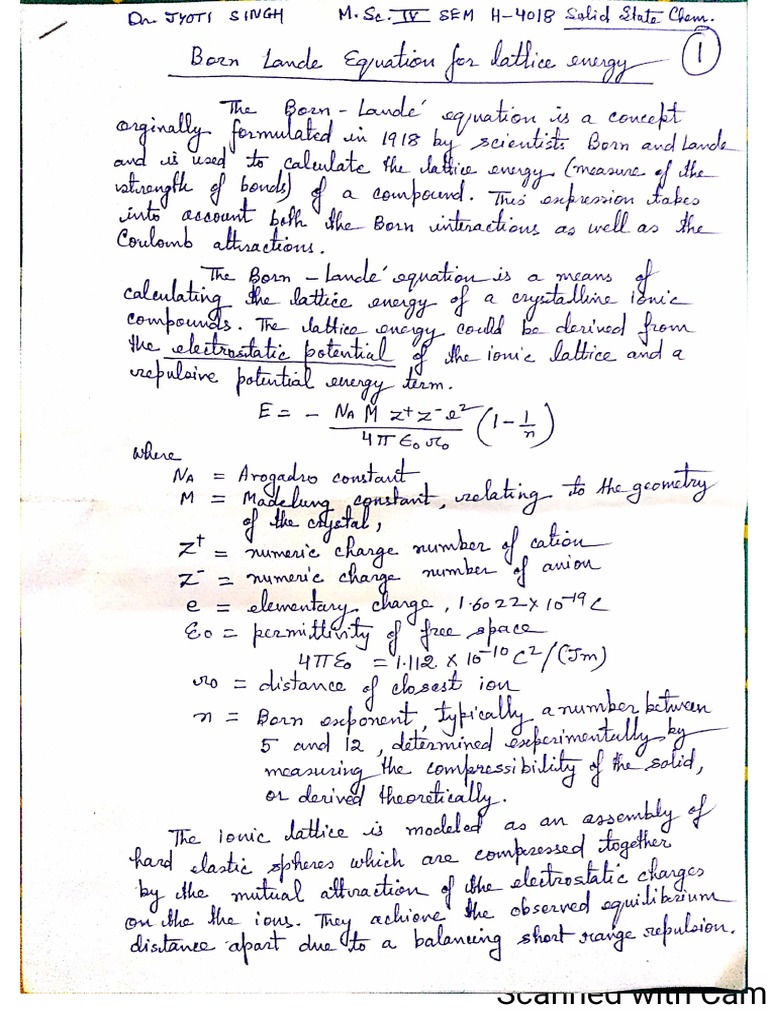 Dr. JYOTI SINGH M.Sc. IV SEM H-4018 Solid State Chem.
Born Lande Equation for lattice energy 1
The Born-Lande' equation is a concept
orginally formulated in 1918 by scientists Born and Lande
and is used to calculate the lattice energy (measure of the
strength of bonds) of a compound. This expression takes
into account both the Born interactions as well as the
Coulomb attractions.
The Born-Lande' equation is a means of
calculating the lattice energy of a crystalline ionic
compounds. The lattice energy could be derived from
the electrostatic potential of the ionic lattice and a
repulsive potential energy term.
E = - NA M z+ z- e² / 4π ε0 r0 (1 - 1/n)
where
NA = Avogadro constant
M = Madelung constant, relating to the geometry
of the crystal,
z+ = numeric charge number of cation
z- = numeric charge number of anion
e = elementary charge, 1.6022 × 10-19 C
ε0 = permittivity of free space
4πε0 = 1.112 × 10-10 C²/(Jm)
r0 = distance of closest ion
n = Born exponent, typically a number between
5 and 12, determined experimentally by
measuring the compressibility of the solid,
or derived theoretically.
The ionic lattice is modeled as an assembly of
hard elastic spheres which are compressed together
by the mutual attraction of the electrostatic charges
on the the ions. They achieve the observed equilibrium
distance apart due to a balancing short range repulsion.
Scanned with Cam